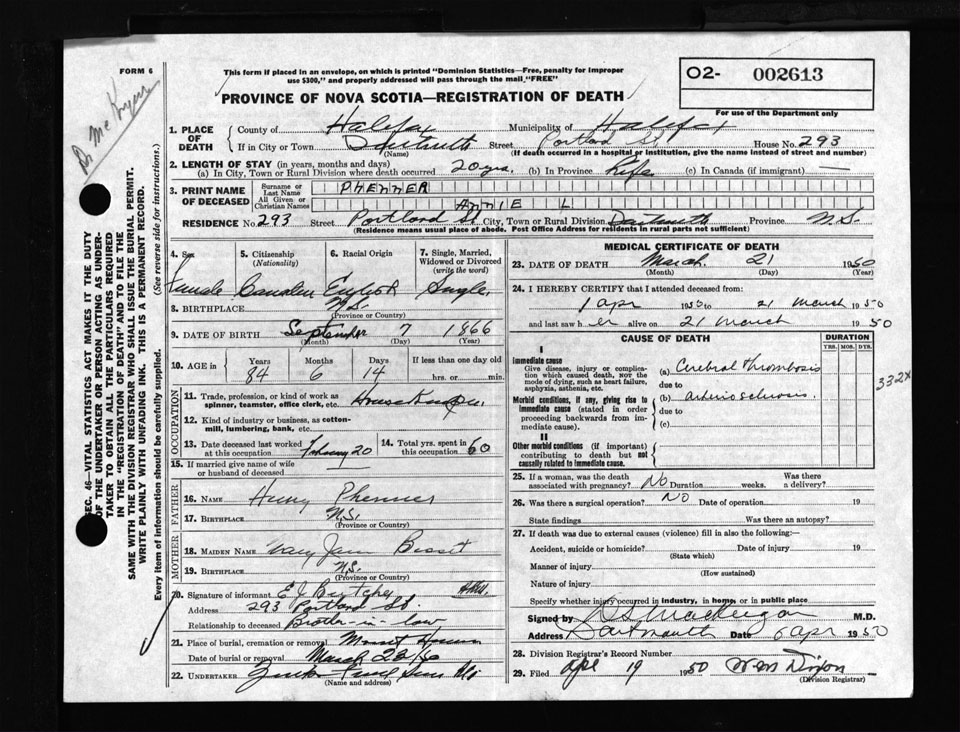 FORM 6
This form if placed in an envelope, on which is printed "Dominion Statistics—Free, penalty for improper
use $300," and properly addressed will pass through the mail "FREE"
PROVINCE OF NOVA SCOTIA—REGISTRATION OF DEATH
O2- 002613
For use of the Department only
1. PLACE OF DEATH
County of Halifax Municipality of Halifax
If in City or Town Street Portland St House No. 293
(Name) (If death occurred in a hospital or institution, give the name instead of street and number)
2. LENGTH OF STAY (in years, months and days)
(a) In City, Town or Rural Division where death occurred 20 yrs. (b) In Province Life (c) In Canada (if immigrant) —
3. PRINT NAME OF DECEASED
Surname or Last Name PHENNER
All Given or Christian Names ANNIE L
RESIDENCE No. 293 Street Portland St City, Town or Rural Division Dartmouth Province N.S.
(Residence means usual place of abode. Post Office Address for residents in rural parts not sufficient)
4. Sex Female
5. Citizenship (Nationality) Canadian
6. Racial Origin English
7. Single, Married, Widowed or Divorced (write the word) Single
8. BIRTHPLACE N.S.
(Province or Country)
9. DATE OF BIRTH September 7 1866
(Month) (Day) (Year)
10. AGE in Years 84 Months 6 Days 14 If less than one day old hrs. or min.
OCCUPATION
11. Trade, profession, or kind of work as spinner, teamster, office clerk, etc. Housekeeper
12. Kind of industry or business, as cotton-mill, lumbering, bank, etc.
13. Date deceased last worked at this occupation 20
14. Total yrs. spent in this occupation 60
15. If married give name of wife or husband of deceased —
FATHER
16. NAME Henry Phenner
17. BIRTHPLACE N.S.
(Province or Country)
MOTHER
18. MAIDEN NAME Mary Jane Bissett
19. BIRTHPLACE N.S.
(Province or Country)
20. Signature of informant E J
Address 293 Portland St.
Relationship to deceased Brother-in-law
21. Place of burial, cremation or removal
Date of burial or removal March 23/50
22. UNDERTAKER
(Name and address)
MEDICAL CERTIFICATE OF DEATH
23. DATE OF DEATH March 21 1950
(Month) (Day) (Year)
24. I HEREBY CERTIFY that I attended deceased from:
1 apr 1950 to 21 March 1950
and last saw h er alive on 21 March 1950
CAUSE OF DEATH DURATION
YRS. MOS. DYS.
I
Immediate cause
Give disease, injury or complication which caused death, NOT the mode of dying, such as heart failure, asphyxia, asthenia, etc.
(a) Cerebral thrombosis
due to
Morbid conditions, if any, giving rise to immediate cause (stated in order proceeding backwards from immediate cause).
(b) arteriosclerosis.
due to
(c)
332X
II
Other morbid conditions (if important) contributing to death but not causally related to immediate cause.
25. If a woman, was the death associated with pregnancy? No Duration weeks. Was there a delivery?
26. Was there a surgical operation? No Date of operation 19
State findings Was there an autopsy?
27. If death was due to external causes (violence) fill in also the following:—
Accident, suicide or homicide? Date of injury 19
(State which)
Manner of injury
(How sustained)
Nature of injury
Specify whether injury occurred in industry, in home, or in public place
Signed by M.D.
Address Dartmouth Date 6 apr 1950
28. Division Registrar's Record Number
29. Filed Apl 19 1950 W M Dixon
(Division Registrar)
SEC. 46—VITAL STATISTICS ACT MAKES IT THE DUTY
OF THE UNDERTAKER OR PERSON ACTING AS UNDER-
TAKER TO OBTAIN ALL THE PARTICULARS REQUIRED
IN THE "REGISTRATION OF DEATH" AND TO FILE THE
SAME WITH THE DIVISION REGISTRAR WHO SHALL ISSUE THE BURIAL PERMIT.
WRITE PLAINLY WITH UNFADING INK. THIS IS A PERMANENT RECORD.
Every item of information should be carefully supplied. (See reverse side for instructions.)